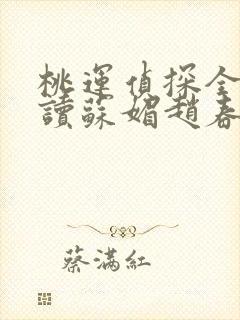 桃運偵探全
讀蘇媚趙春
蔡滿紅